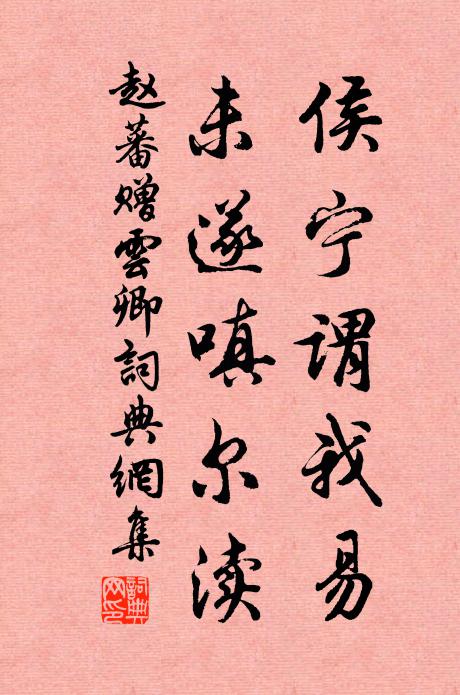 侯宁谓我易
未遂嗔尔渎
赵蕃赠雲卿詞典網集
詞典网印